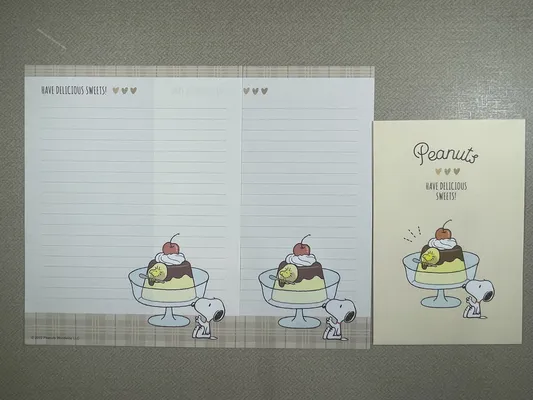 HAVE DELICIOUS SWEETS!
Peanuts
HAVE DELICIOUS
SWEETS!